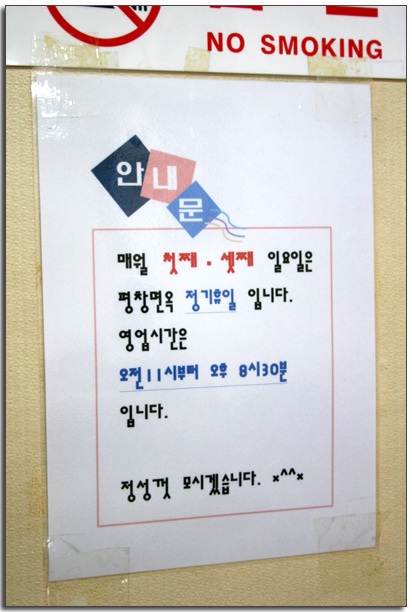 NO SMOKING
안내문
매월 첫째 · 셋째 일요일은
평창면옥 정기휴일 입니다.
영업시간은
오전11시부터 오후 8시30분
입니다.
정성껏 모시겠습니다. *^^*